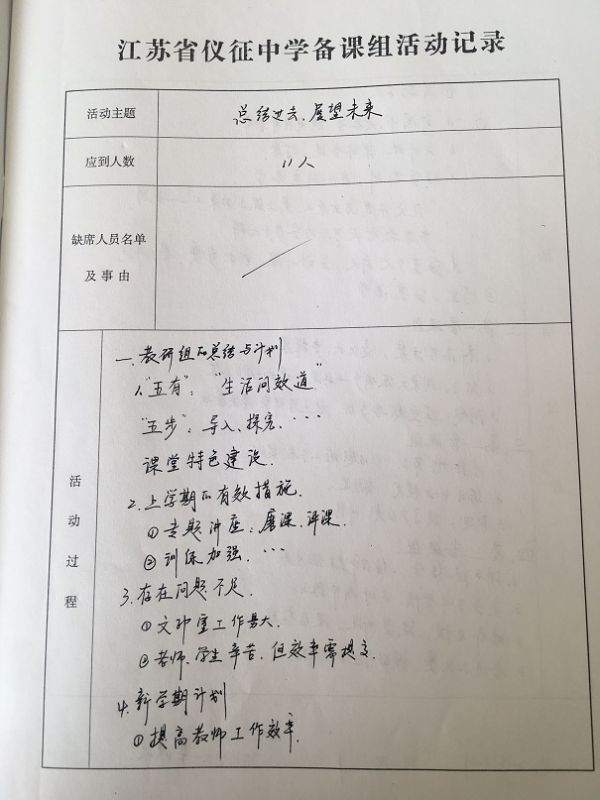 江苏省仪征中学备课组活动记录
活动主题
总结过去、展望未来
应到人数
11人
缺席人员名单
及事由
活动过程
一、教研组的总结与计划
1、"五有"："生活问效道"
"五步"：导入、探究、···
课堂特色建设.
2.上学期的有效措施.
①专题讲座：磨课、评课.
②训练加强.···
3.存在问题、不足
①文印室工作量大.
②老师、学生辛苦、但效率需提高.
4.新学期计划
①提高教师工作效率.